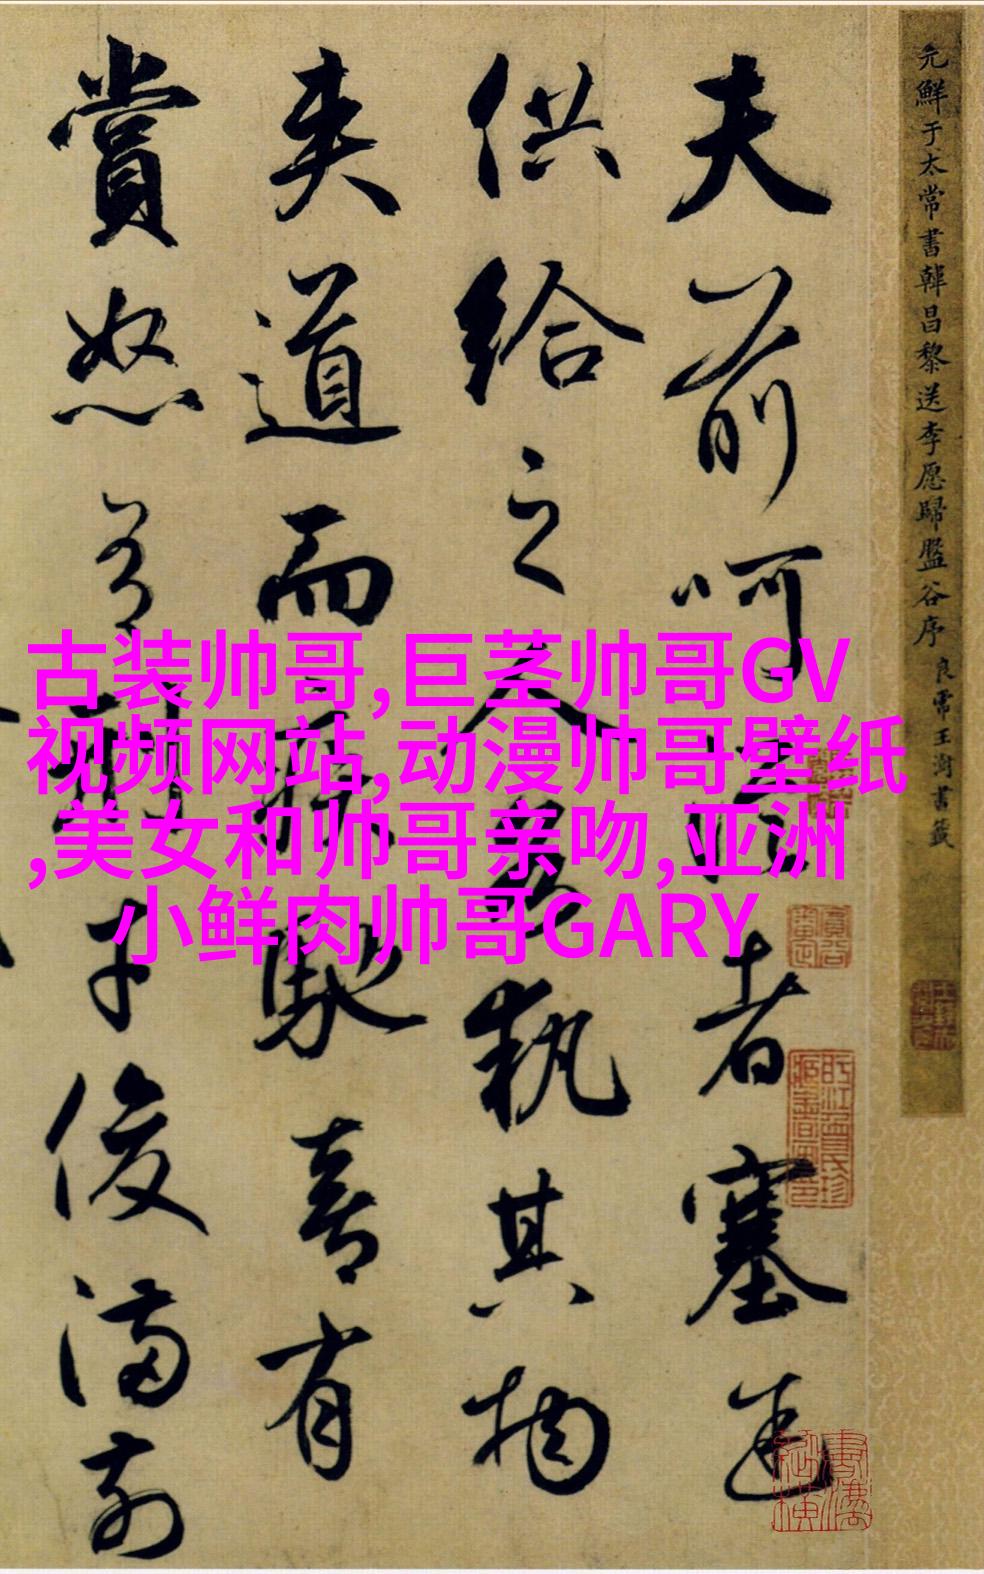 元鮮于太常書韓昌黎送李愿歸盤谷序 良常王澍書籤
夫前呵從者塞途
供給之人各執其物
夾道而疾馳喜有
賞怒有刑才俊滿前
古装帅哥,巨茎帅哥GV
视频网站,动漫帅哥壁纸
,美女和帅哥亲吻,亚洲
小鲜肉帅哥GARY